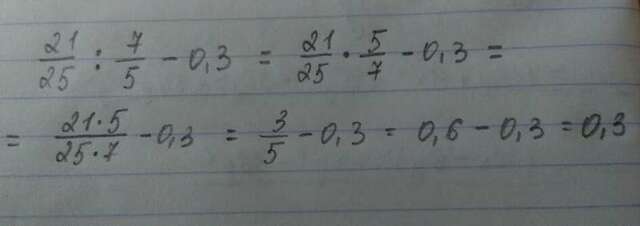 21/25 : 7/5 - 0,3 = 21/25 · 5/7 - 0,3 =
= 21·5/25·7 - 0,3 = 3/5 - 0,3 = 0,6 - 0,3 = 0,3